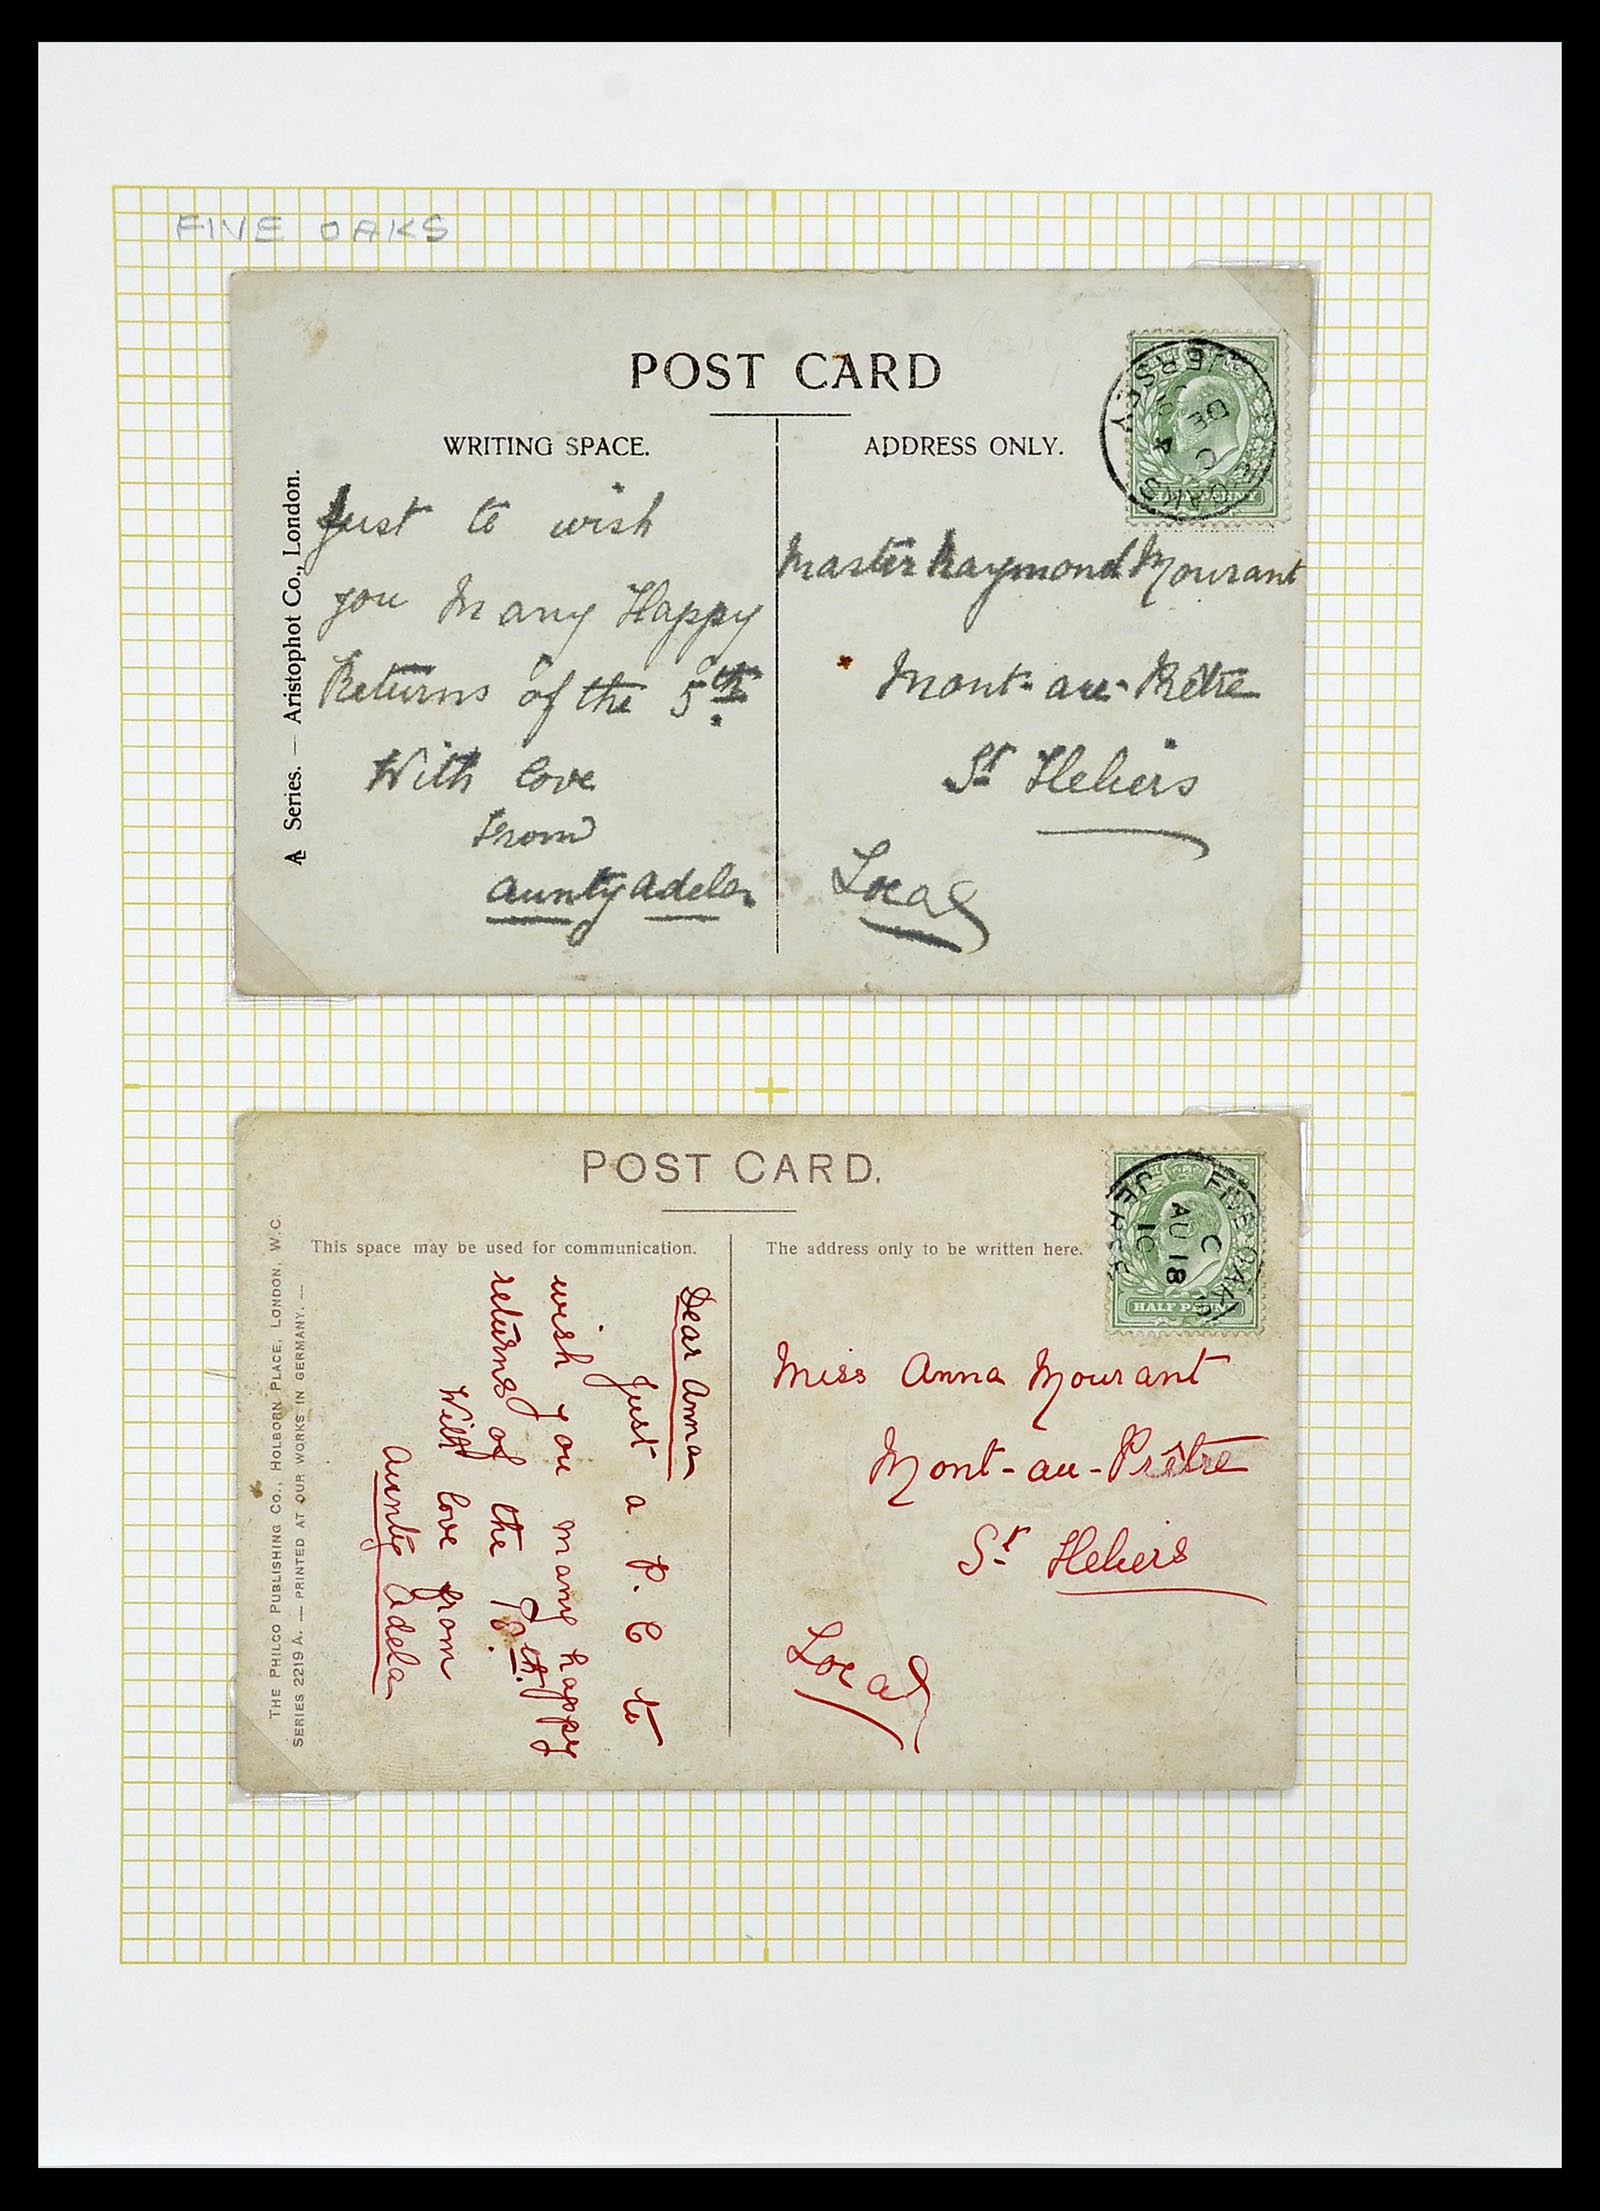 FIVE OAKS
POST CARD
WRITING SPACE.
ADDRESS ONLY.
A Series. — Aristophot Co., London.
Just to wish
you Many Happy
Returns of the 5th
With love
From
Aunty Adela
JERSEY
OAKS
C
DE 4
Master Raymond Mourant
Mont-au-Prêtre
St Heliers
Local
POST CARD.
This space may be used for communication.
The address only to be written here.
THE PHILCO PUBLISHING CO., HOLBORN PLACE, LONDON, W.C.
SERIES 2219 A. — PRINTED AT OUR WORKS IN GERMANY. —
Dear Anna
Just a P.C to
wish you many happy
returns of the
With love from
Aunty Adela
FIVE OAKS
C
AU 18
10
HALF PENNY
Miss Anna Mourant
Mont-au-Prêtre
St Heliers
Local